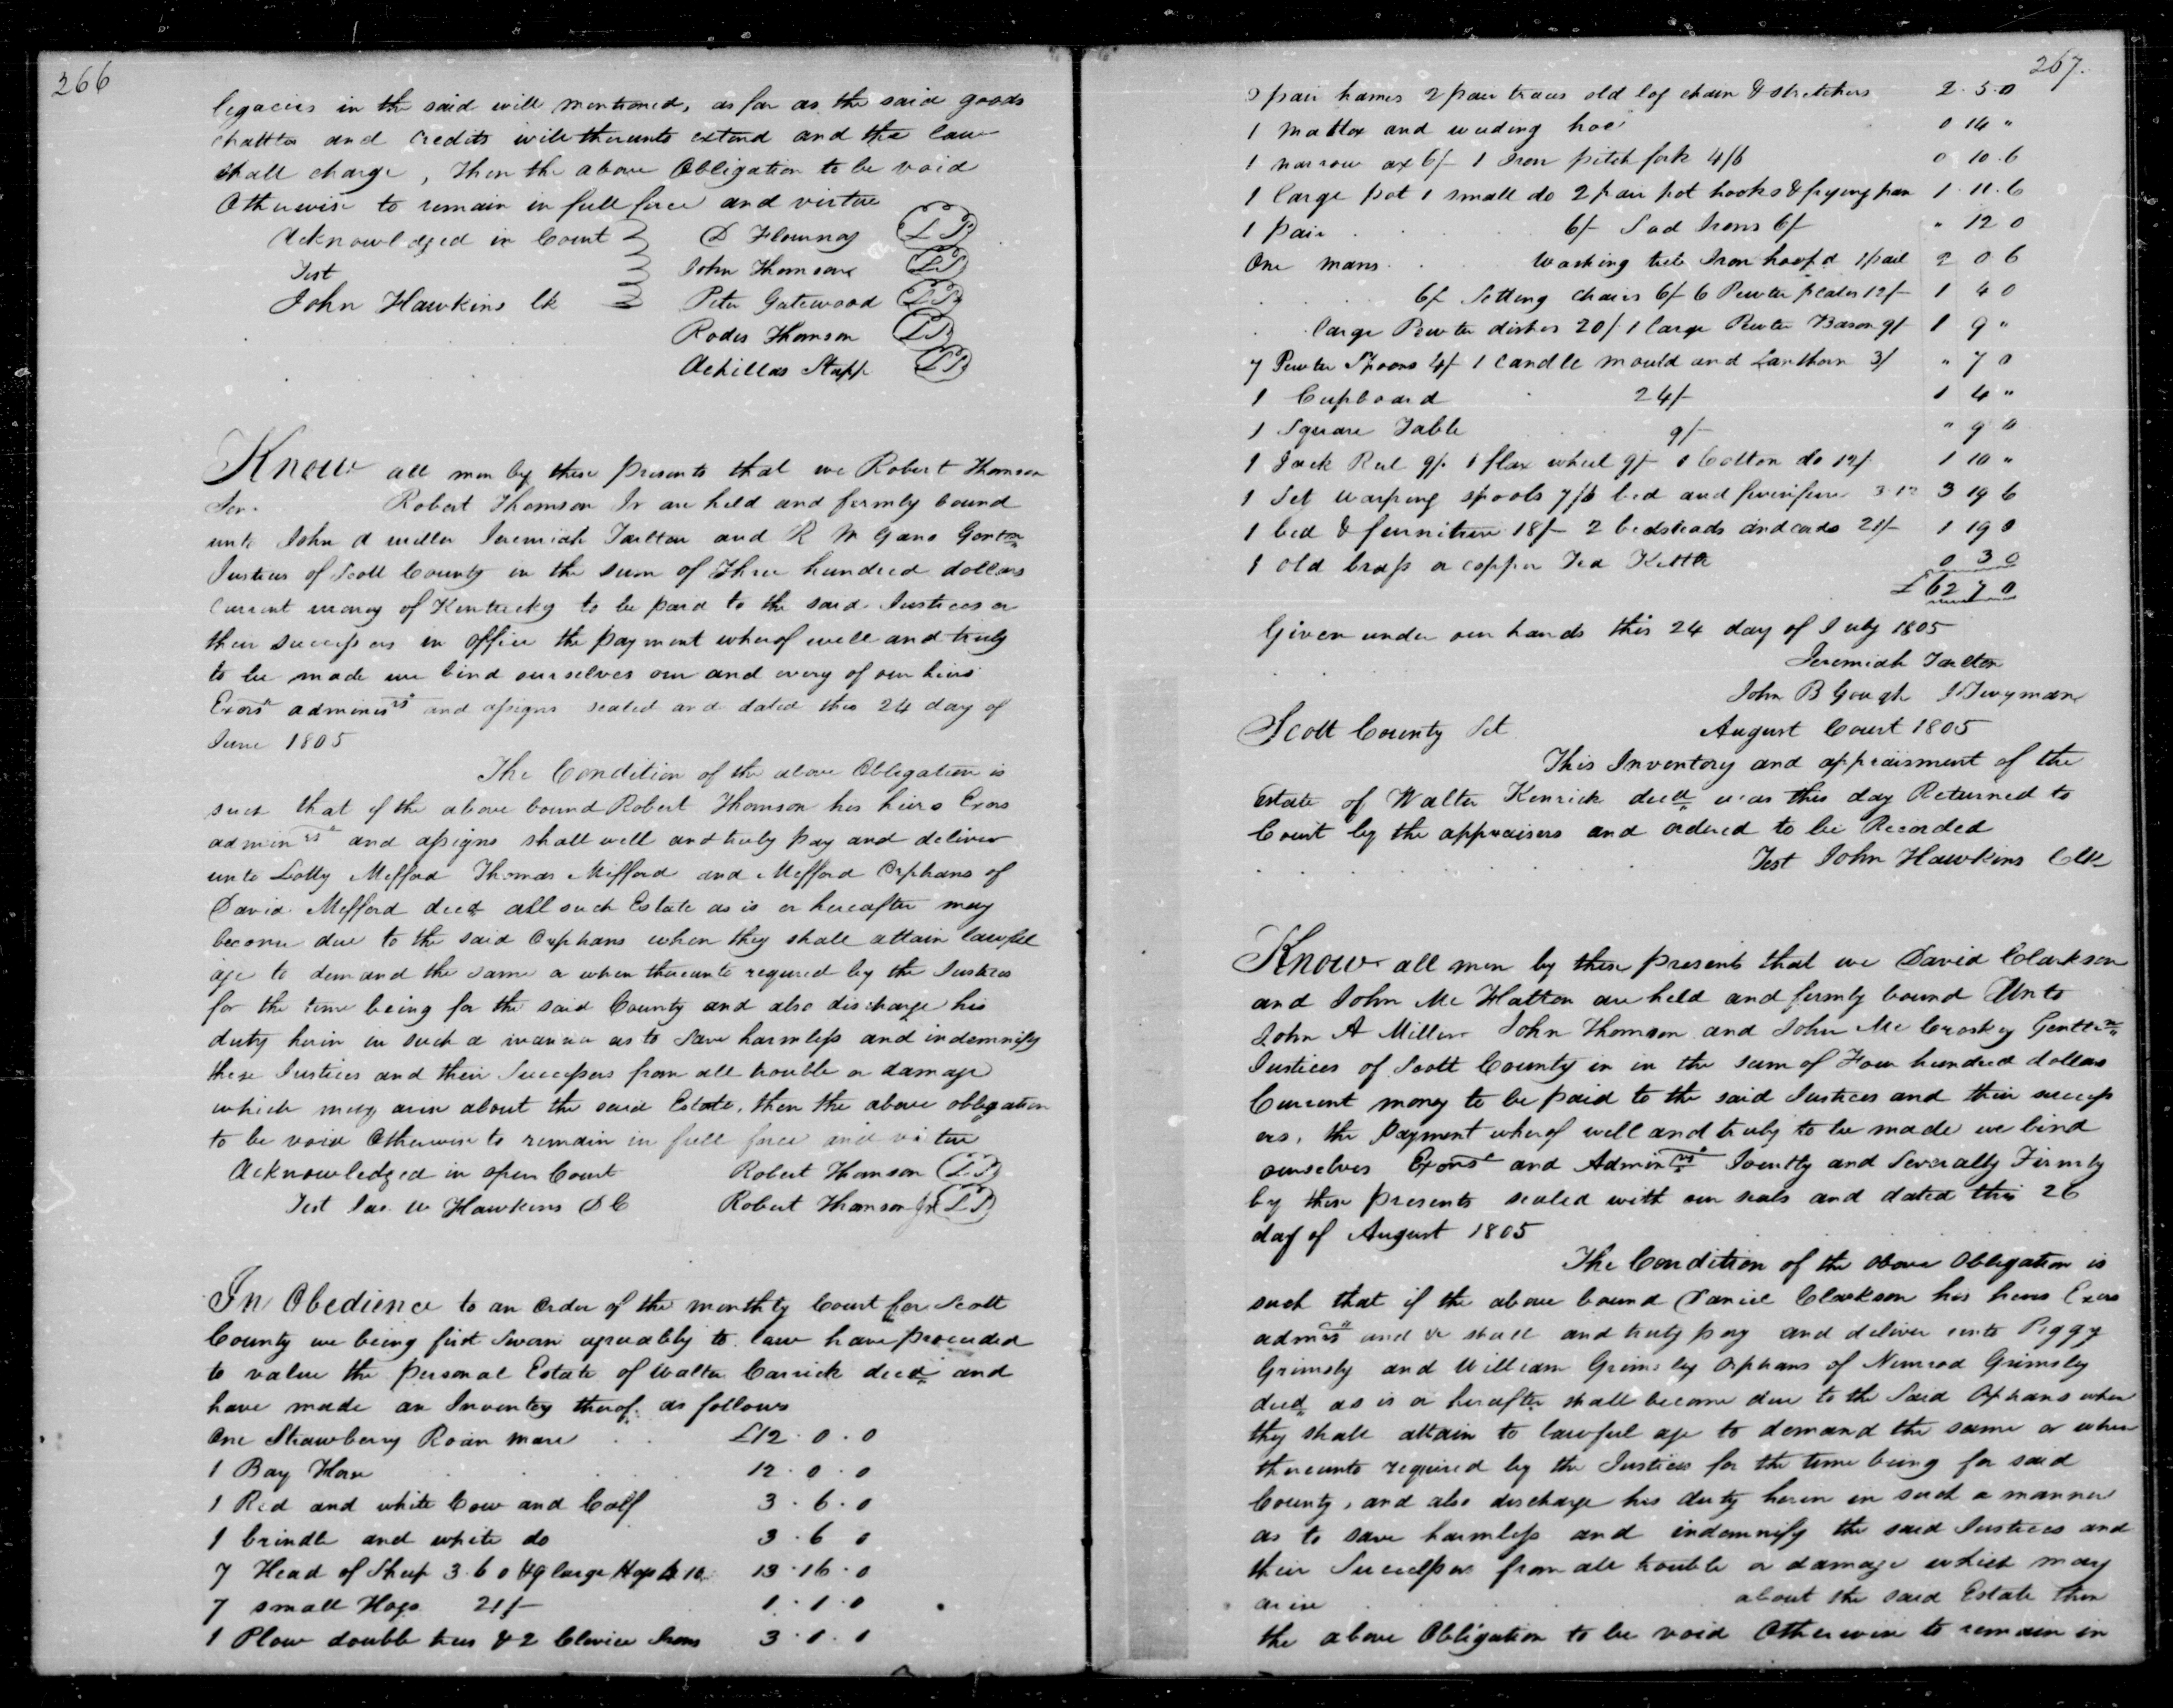 266
legacies in the said will mentioned, as far as the said goods
chattles and Credits will thereunto extend and the law
shall charge, Then the above Obligation to be void
Otherwise to remain in full force and virtue
Acknowledged in Court D Flournoy (LS)
Test John Thomson (LS)
John Hawkins Ck Peter Gatewood (LS)
Rodes Thomson (LS)
Achillas Stapp (LS)
Know all men by these presents that we Robert Thomson
Sen. Robert Thomson Jr are held and firmly bound
unto John A Miller Jeremiah Tarlton and R M Gano Gentm
Justices of Scott County in the sum of Three hundred dollars
Current money of Kentucky to be paid to the said Justices or
their successors in office the payment whereof well and truly
to be made we bind ourselves our and every of our heirs
Exors adminisrs and assigns sealed and dated this 24 day of
June 1805
The Condition of the above Obligation is
such that if the above bound Robert Thomson his heirs Exors
adminrs and assigns shall well and truly pay and deliver
unto Lotty Mefford Thomas Mefford and Mefford Orphans of
David Mefford decd all such Estate as is or hereafter may
become due to the said Orphans when they shall attain lawful
age to demand the same or when thereunto required by the Justices
for the time being for the said County and also discharge his
duty herin in such a manner as to Save harmless and indemnify
these Justices and their Successors from all trouble or damage
which may arise about the said Estate, then the above obligation
to be void Otherwise to remain in full force and virtue
Acknowledged in open Court Robert Thomson (LS)
Test Jas. W Hawkins D C Robert Thomson Jr (LS)
In Obedience to an Order of the monthly Court for Scott
County we being first Sworn agreeably to law have proceeded
to value the personal Estate of Walter Carrick decd and
have made an Inventory thereof as follows
One Strawberry Roan mare £12 . 0 . 0
1 Bay Horse 12 . 0 . 0
1 Red and white Cow and Calf 3 . 6 . 0
1 brindle and white do 3 . 6 0
7 Head of Sheep 3. 6 0 49 large Hogs 10 13 . 16 . 0
7 small Hogs 21/- 1 . 1 . 0
1 Plow double trees & 2 Clevice Irons 3 . 1 . 1
267.
2 pair hames 2 pair traces old log chain & stretchers 2 . 5 . 0
1 Mattox and weeding hoe 0 14 "
1 narrow ax 6/- 1 Iron pitch fork 4/6 0 10 . 6
1 large pot 1 small do 2 pair pot hooks & frying pan 1 . 11 . 6
1 pair 6/- Sad Irons 6/- " 12 0
One mans washing tub Iron hoop'd 1 pail 2 0 6
6/- Setting chairs 6/- 6 Pewter plates 12/- 1 4 0
large Pewter dishes 20/- 1 large Pewter Bason 9/- 1 9 "
7 Pewter Spoons 4/- 1 Candle mould and Lanthorn 3/ " 7 0
1 Cupboard 24/- 1 4 "
1 Square Table 9/- " 9 0
1 Jack Reel 9/- 1 flax wheel 9/- 1 Cotton do 12/- 1 10 "
1 Set warping spools 7/6 bed and furniture 3.12 3 19 6
1 bed & furniture 18/- 2 bedsteads and cords 21/- 1 19 0
1 old brass or copper Tea Kettle 0 3 0
£62 7 0
Given under our hands this 24 day of July 1805
Jeremiah Tarlton
John B Gough J Twyman
Scott County Sct August Court 1805
This Inventory and appraisment of the
Estate of Walter Kenrick decd was this day Returned to
Court by the appraisers and ordered to be Recorded
Test John Hawkins Clk
Know all men by these presents that we David Clarkson
and John Mc Hatton are held and firmly bound Unto
John A Miller John Thomson and John Mc Croskey Gentlem
Justices of Scott County in in the sum of Four hundred dollars
Current money to be paid to the said Justices and their success
ors, the payment whereof well and truly to be made we bind
ourselves Exors and Adminrs Jointly and Severally Firmly
by these presents sealed with our seals and dated this 26
day of August 1805
The Condition of the above Obligation is
such that if the above bound Daniel Clarkson his heirs Exors
admrs and &c shall and truly pay and deliver unto Peggy
Grimsley and William Grimsley Orphans of Nimrod Grimsley
decd as is or hereafter shall become due to the Said Orphans when
they shall attain to lawful age to demand the same or when
thereunto required by the Justices for the time being for said
County, and also discharge his duty herein in such a manner
as to save harmless and indemnify the said Justices and
their Successors from all trouble or damage which may
arise about the said Estate then
the above Obligation to be void Otherwise to remain in